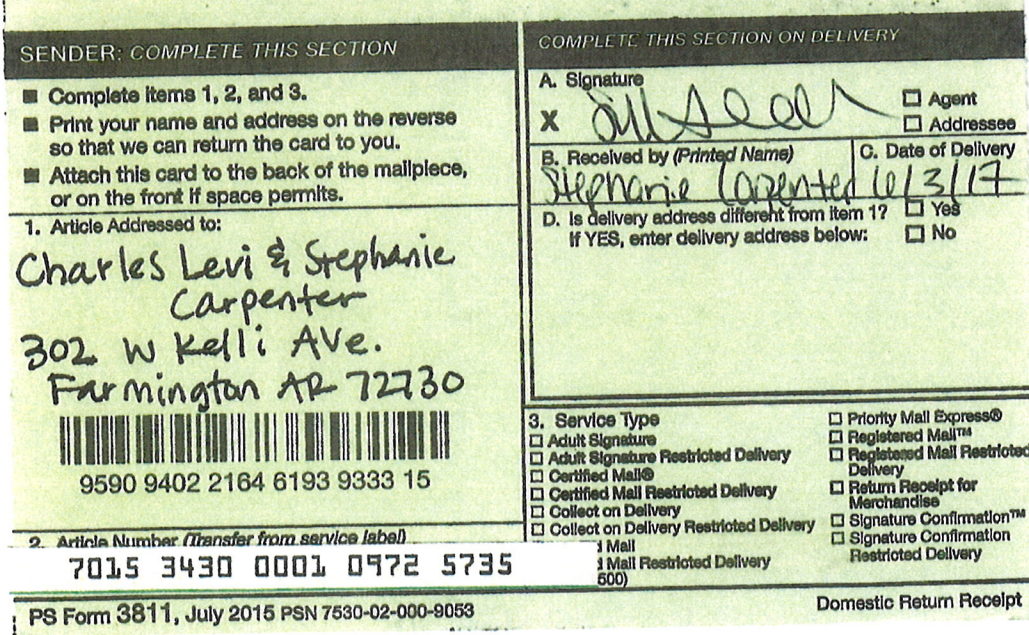 SENDER: COMPLETE THIS SECTION
■ Complete items 1, 2, and 3.
■ Print your name and address on the reverse
so that we can return the card to you.
■ Attach this card to the back of the mailpiece,
or on the front if space permits.
1. Article Addressed to:
Charles Levi & Stephanie
Carpenter
302 W Kelli Ave.
Farmington AR 72730
9590 9402 2164 6193 9333 15
2. Article Number (Transfer from service label)
7015 3430 0001 0972 5735
COMPLETE THIS SECTION ON DELIVERY
A. Signature
X
☐ Agent
☐ Addressee
B. Received by (Printed Name)
Stephanie Carpenter
C. Date of Delivery
6/3/17
D. Is delivery address different from item 1? ☐ Yes
If YES, enter delivery address below: ☐ No
3. Service Type
☐ Adult Signature
☐ Adult Signature Restricted Delivery
☐ Certified Mail®
☐ Certified Mail Restricted Delivery
☐ Collect on Delivery
☐ Collect on Delivery Restricted Delivery
Mail
Mail Restricted Delivery
500)
☐ Priority Mail Express®
☐ Registered Mail™
☐ Registered Mail Restricted
Delivery
☐ Return Receipt for
Merchandise
☐ Signature Confirmation™
☐ Signature Confirmation
Restricted Delivery
PS Form 3811, July 2015 PSN 7530-02-000-9053
Domestic Return Receipt